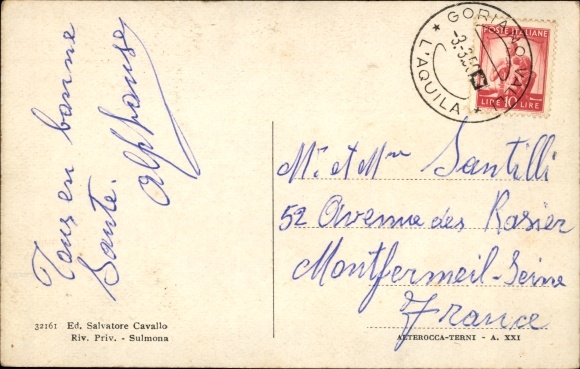 Tous en bonne
Santé.
Alphonse
GORIANO VALLI
L'AQUILA
POSTE ITALIANE
LIRE 10 LIRE
Mr. et Mme Santilli
52 Avenue des Rosier
Montfermeil-Seine
France
32161 Ed. Salvatore Cavallo
Riv. Priv. - Sulmona
ALTEROCCA-TERNI - A. XXI